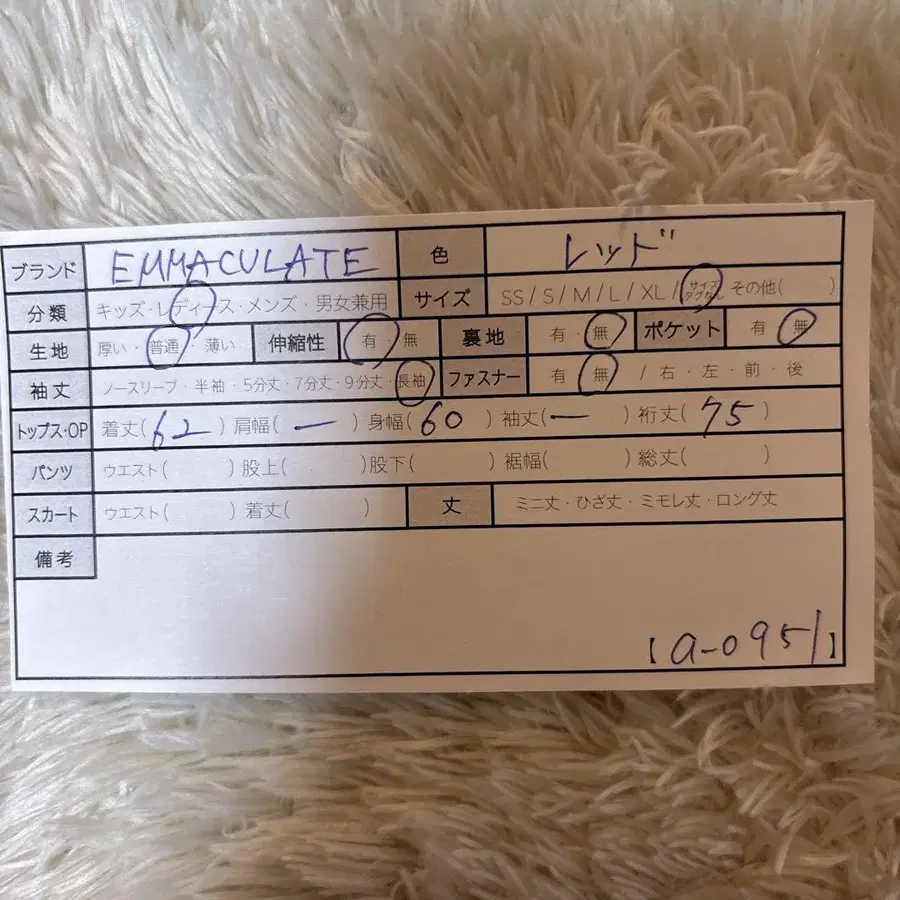 ブランド EMMACULATE 色 レッド
分類 キッズ・レディース・メンズ・男女兼用 サイズ SS/S/M/L/XL/サイズタグなし その他( )
生地 厚い・普通・薄い 伸縮性 有・無 裏地 有・無 ポケット 有・無
袖丈 ノースリーブ・半袖・5分丈・7分丈・9分丈・長袖 ファスナー 有・無 / 右・左・前・後
トップス・OP 着丈(62)肩幅(ー)身幅(60)袖丈(ー)裄丈(75)
パンツ ウエスト( )股上( )股下( )裾幅( )総丈( )
スカート ウエスト( )着丈( ) 丈 ミニ丈・ひざ丈・ミモレ丈・ロング丈
備考
【a-0951】